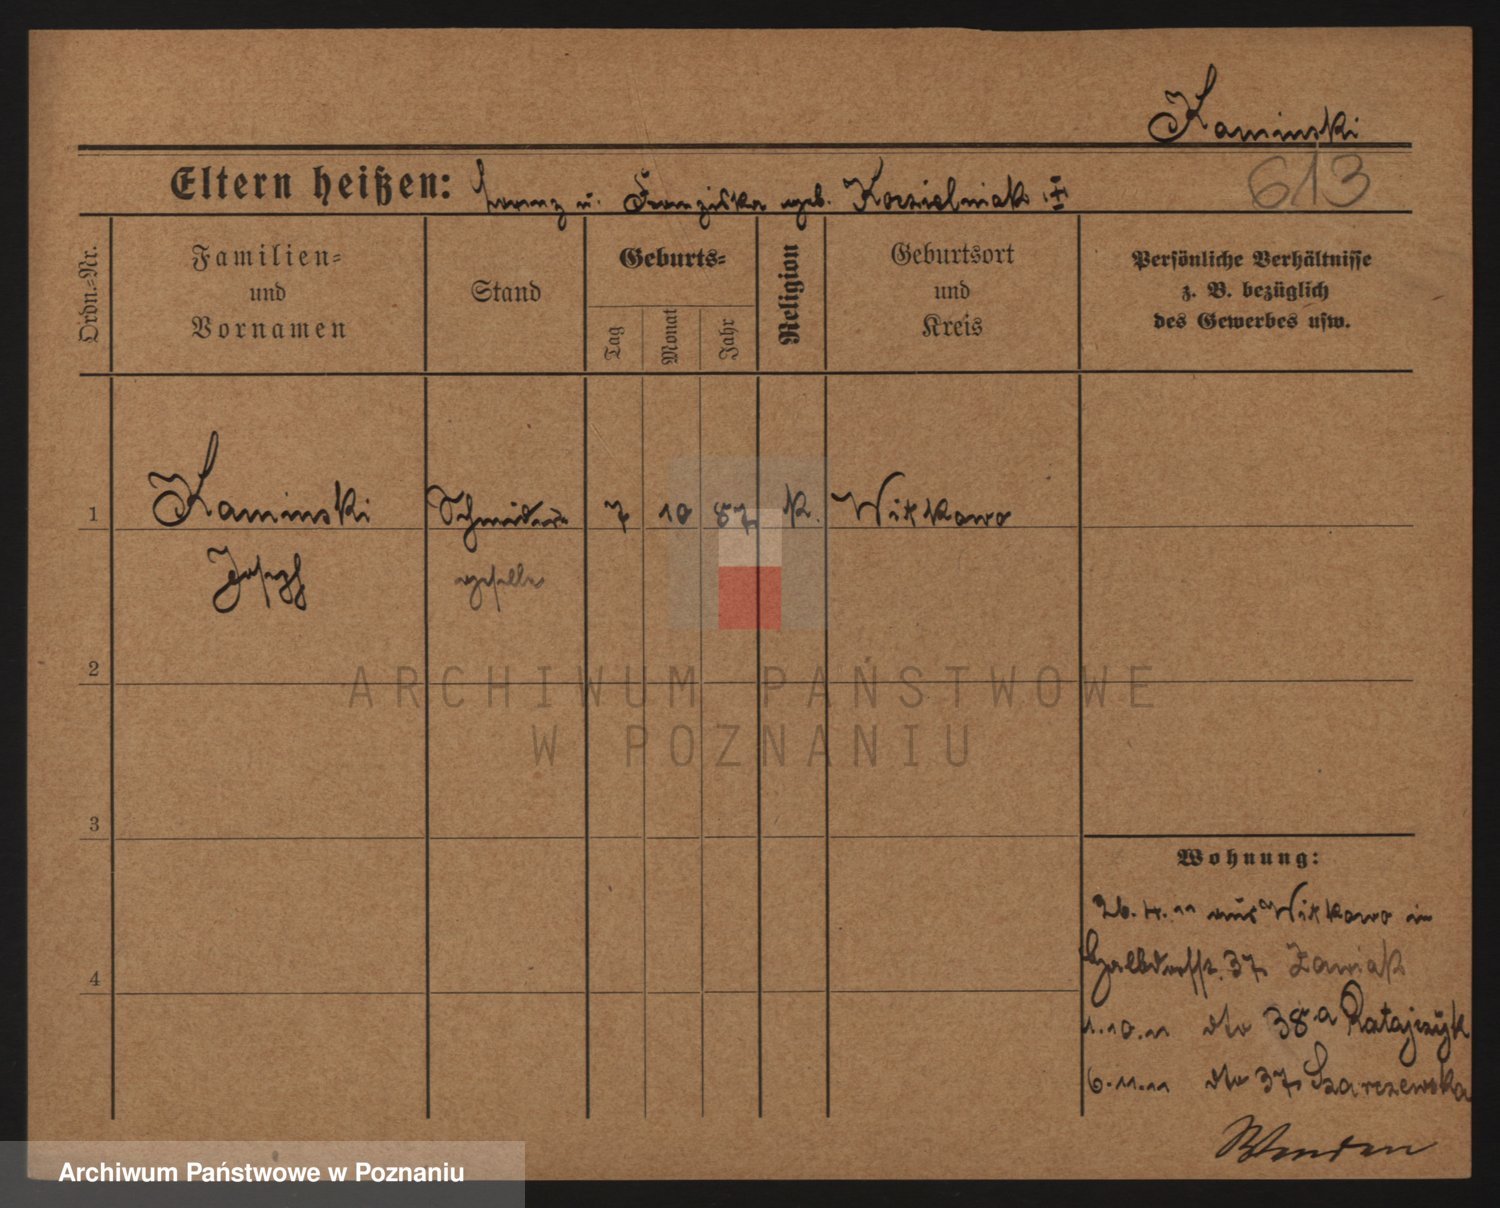 Kaminski
613
Eltern heißen: Franz u. Franziska geb. Kozielniak
Ordn.-Nr.
Familien-
und
Vornamen
Stand
Geburts-
Tag
Monat
Jahr
Religion
Geburtsort
und
Kreis
Persönliche Verhältnisse
z. B. bezüglich
des Gewerbes usw.
1
Kaminski
Schneider
7
10
87
k.
Witkowo
Joseph
geselle
ARCHIWUM PAŃSTWOWE
W POZNANIU
2
3
4
Wohnung:
26.4.11 aus Witkowo in
37
1.10.11 dto 38a Ratajczyk
6.11.11 dto 37 Szarczewska
Wenden
Archiwum Państwowe w Poznaniu